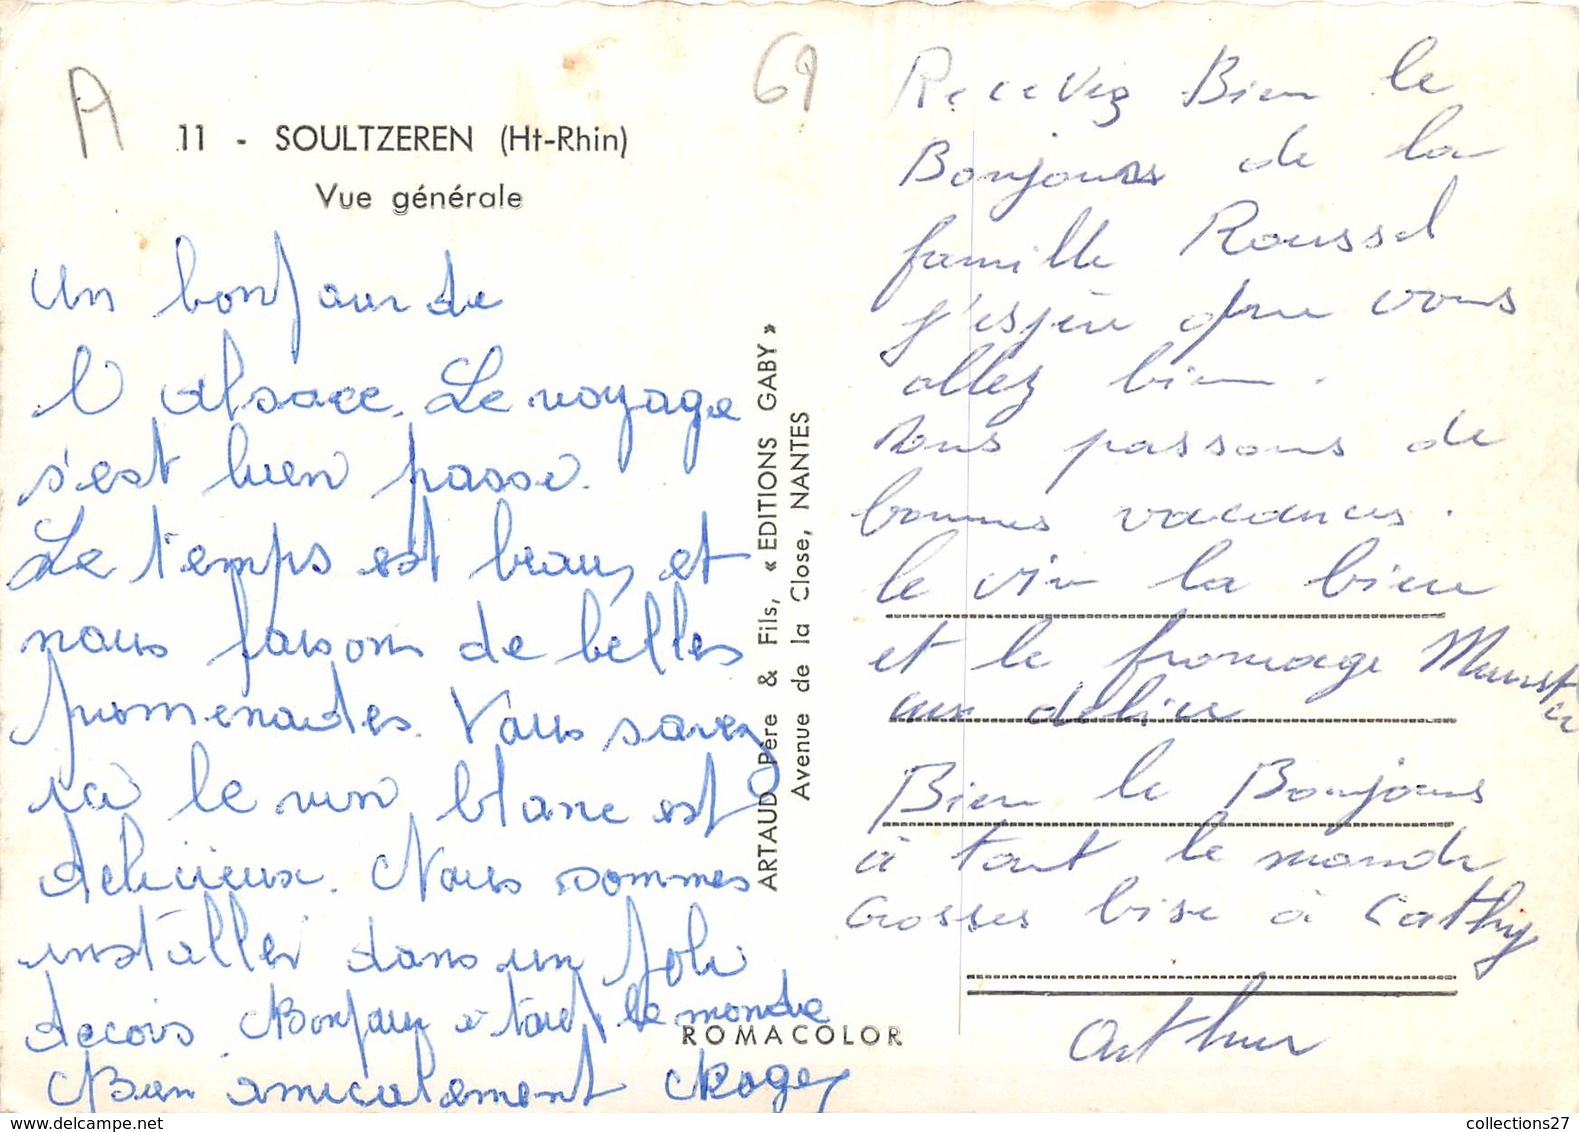 A
69
11 - SOULTZEREN (Ht-Rhin)
Vue générale
Un bonjour de
l'alsace. Le voyage
s'est bien passé.
Le temps est beau, et
nous faisons de belles
promenades. Vous savez
ici le vin blanc est
délicieux. Nous sommes
installer dans un joli
décors. Bonjour a tout le monde
Bien amicalement Roger
ARTAUD Père & Fils, « EDITIONS GABY »
Avenue de la Close, NANTES
ROMACOLOR
Recevez Bien le
Bonjours de la
famille Roussel
j'espère que vous
allez bien.
nous passons de
bonnes vacances.
le vin la bière
et le fromage Munster
aux
Bien le Bonjours
à tout le monde
Grosses bise à Cathy
Arthur
collections27